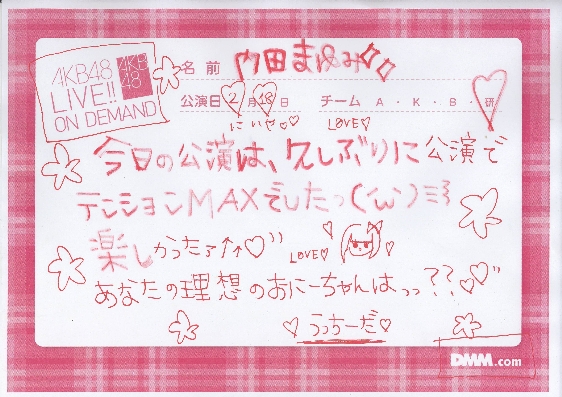 AKB48
LIVE!!
ON DEMAND
AKB
48
名前 内田まゆみ
公演日 2月18日 チーム A・K・B・研
にいや LOVE♡
今日の公演は、久しぶりに公演で
テンションMAXでしたっ(´ω`)
楽しかったァ↑↑♡”
LOVE♡
あなたの理想のおにーちゃんはっっ??♡”
♡うっちーだ♡
DMM.com